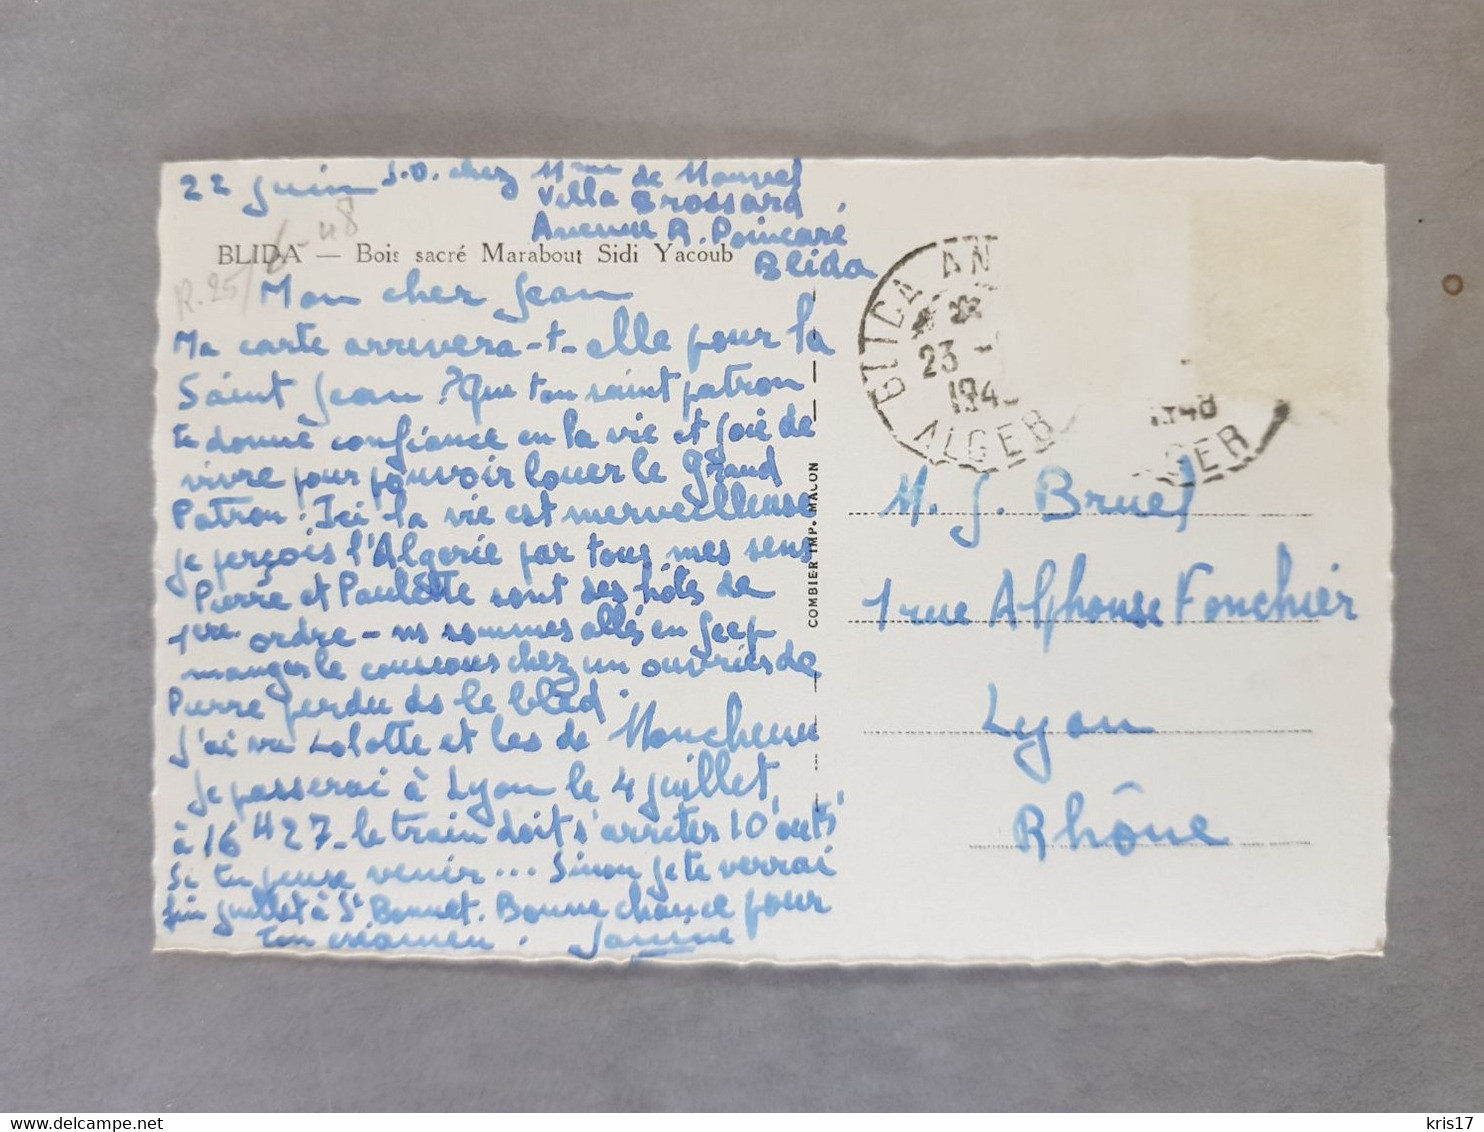 22 juin J.D. chez Mme de Mourel
Villa Brossard
Avenue R. Poincaré
Blida
BLIDA — Bois sacré Marabout Sidi Yacoub
R. 25/6-48
Mon cher Jean
Ma carte arrivera-t-elle pour la
Saint Jean ? Que ton saint patron
te donne confiance en la vie et joie de
vivre pour pouvoir louer le Grand
Patron. Ici la vie est merveilleuse
je perçois l'Algérie par tous mes sens
Pierre et Paulette sont des hôtes de
1ère ordre - ns sommes allés en jeep
manger le couscous chez un ouvrier de
Pierre perdu ds le bled.
J'ai vu Lolotte et les de Moncheun
Je passerai à Lyon le 4 juillet
à 16H27 - le train doit s'arrêter 10'
Si tu peux venir... Sinon je te verrai
fin juillet à St Bonnet. Bonne chance pour
ton examen.
COMBIER IMP. MACON
BLIDA AN
23 -
194
ALGER
1948
GER
M. J. Bruel
1 rue Alphonse Fonchier
Lyon
Rhône
kris17